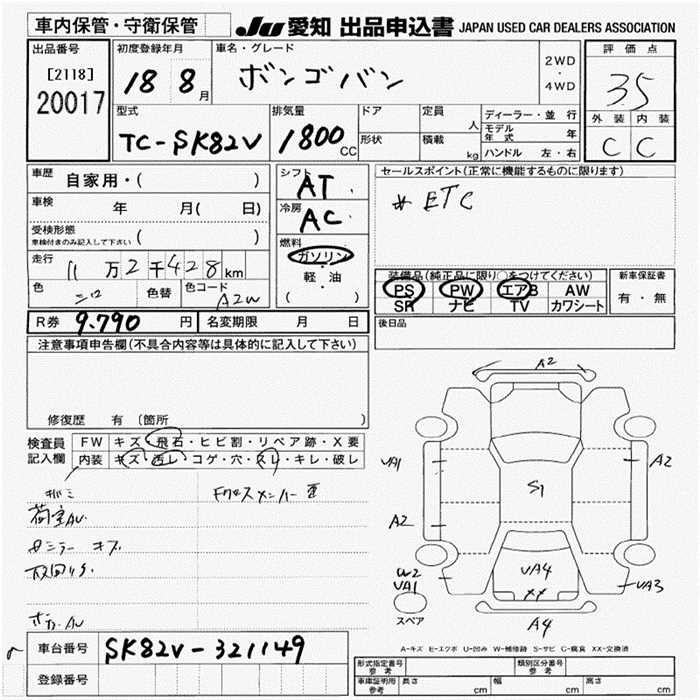 車内保管・守衛保管
JU 愛知 出品申込書 JAPAN USED CAR DEALERS ASSOCIATION
出品番号
[2118]
20017
初度登録年月
18 8月
車名・グレード
ボンゴバン
2WD
・
4WD
評価点
35
外装 内装
C C
型式
TC-SK82V
排気量
1800 CC
ドア
形状
定員 人
積載 kg
ディーラー・並行
モデル年式 年
ハンドル 左・右
車歴 自家用・( )
車検 年 月( 日)
受検形態
車検付きのみ記入して下さい ( )
走行 11万2千428km
色 シロ 色替 色コード A2W
シフト AT
冷房 AC
燃料
ガソリン
・
軽・油
( )
セールスポイント(正常に機能するものに限ります)
* ETC
装備品(純正品に限り○をつけてください)
PS PW エアB AW
SR ナビ TV カワシート
新車保証書
有・無
R券 9.790 円 名変期限 月 日
後日品
注意事項申告欄(不具合内容等は具体的に記入して下さい)
修復歴 有 (箇所 )
検査員
記入欄
FW キズ・飛石・ヒビ割・リペア跡・X要
内装 キズ・汚レ・コゲ・穴・スレ・キレ・破レ
荷室AU
A2
UA1
A2
A2
S1
W2
UA1
UA4
XX
UA3
A4
スペア
A-キズ E-エクボ U-凹み W-補修跡 S-サビ C-腐食 XX-交換済
車台番号 SK82V-321149
登録番号
形式指定番号
参考
類別区分番号
参考
車庫証明用
参考
長さ cm 幅 cm 高さ cm